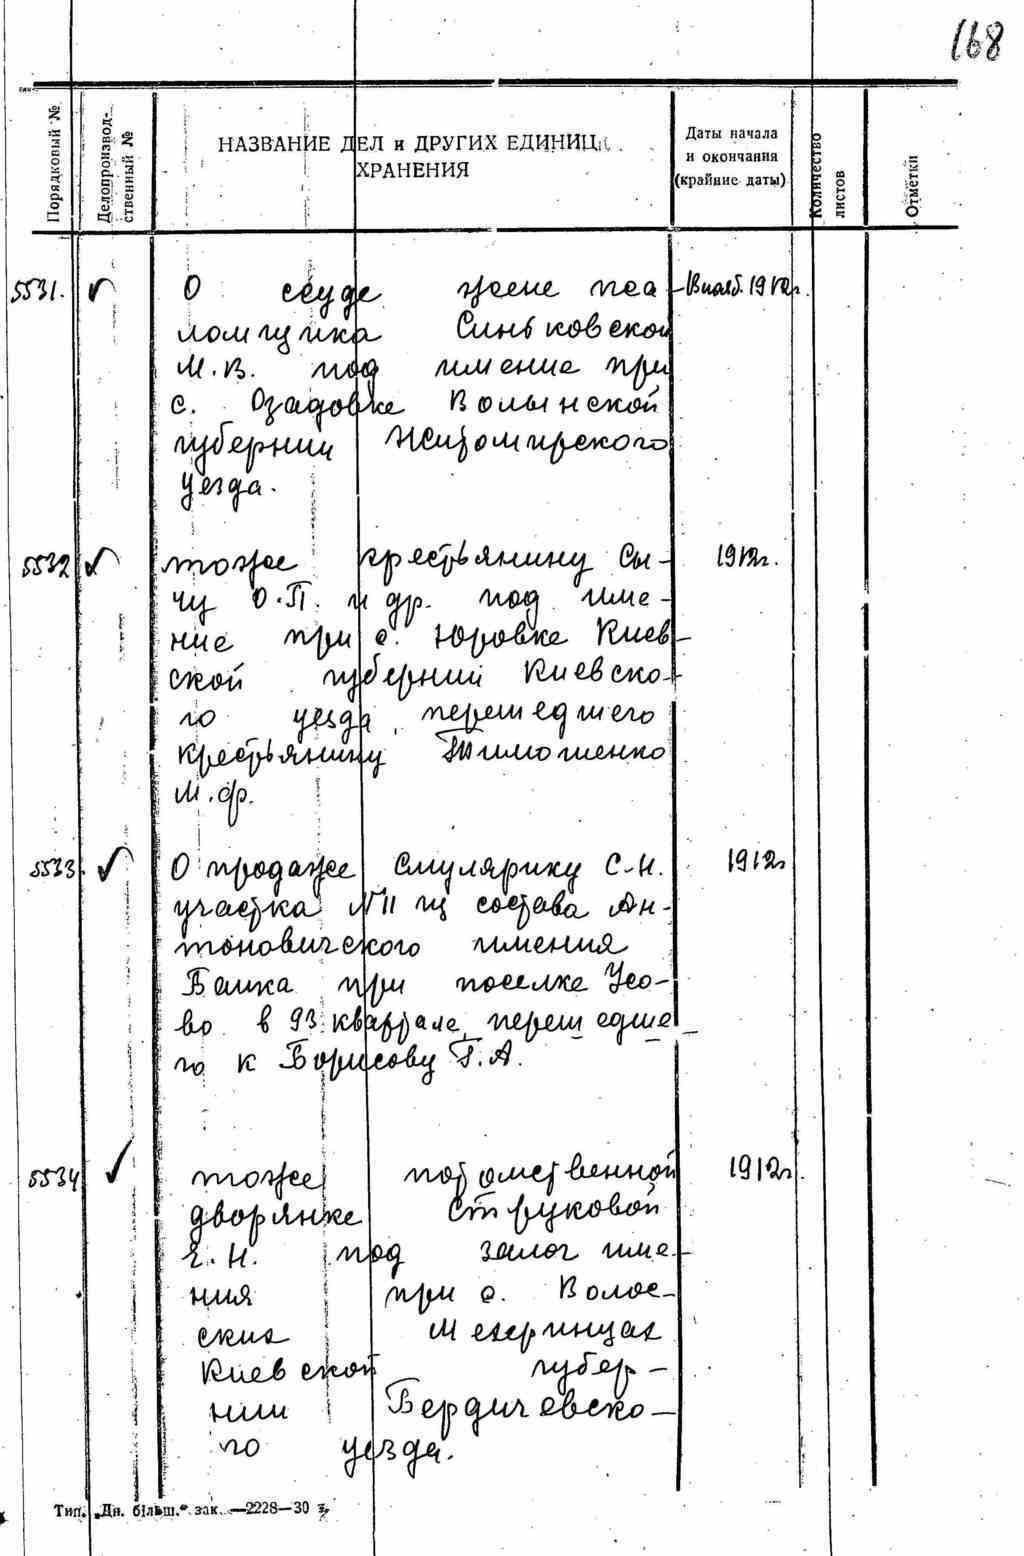 168
Порядковый №
Делопроизвод-
ственный №
НАЗВАНИЕ ДЕЛ и ДРУГИХ ЕДИНИЦ
ХРАНЕНИЯ
Даты начала
и окончания
(крайние даты)
Количество
листов
Отметки
5531. О ссуде жене пса 1912г.
ломщика Синьковской
М.В. под имение при
с. Озадовке Волынской
губернии Житомирского
уезда.
5532 тоже крестьянину Сы- 1912г.
чу О.П. и др. под име-
ние при с. Юровке Киев-
ской губернии Киевско-
го уезда, перешедшего
крестьянину Тимошенко
М.Ф.
5533. О продаже Смулярику С.Н. 1912г
участка №11 из состава Ан-
тоновичского имения
Банка при поселке Усо-
во в 93 квартале, перешедше-
го к Борисову Г.А.
5534 тоже потомственной 1912г.
дворянке Струковой
Н. под залог име-
ния при с. Волос-
ских Мехринцах
Киевской губер-
нии Бердичевско-
го уезда.
Тип. „Дн. більш." зак. —2228—30